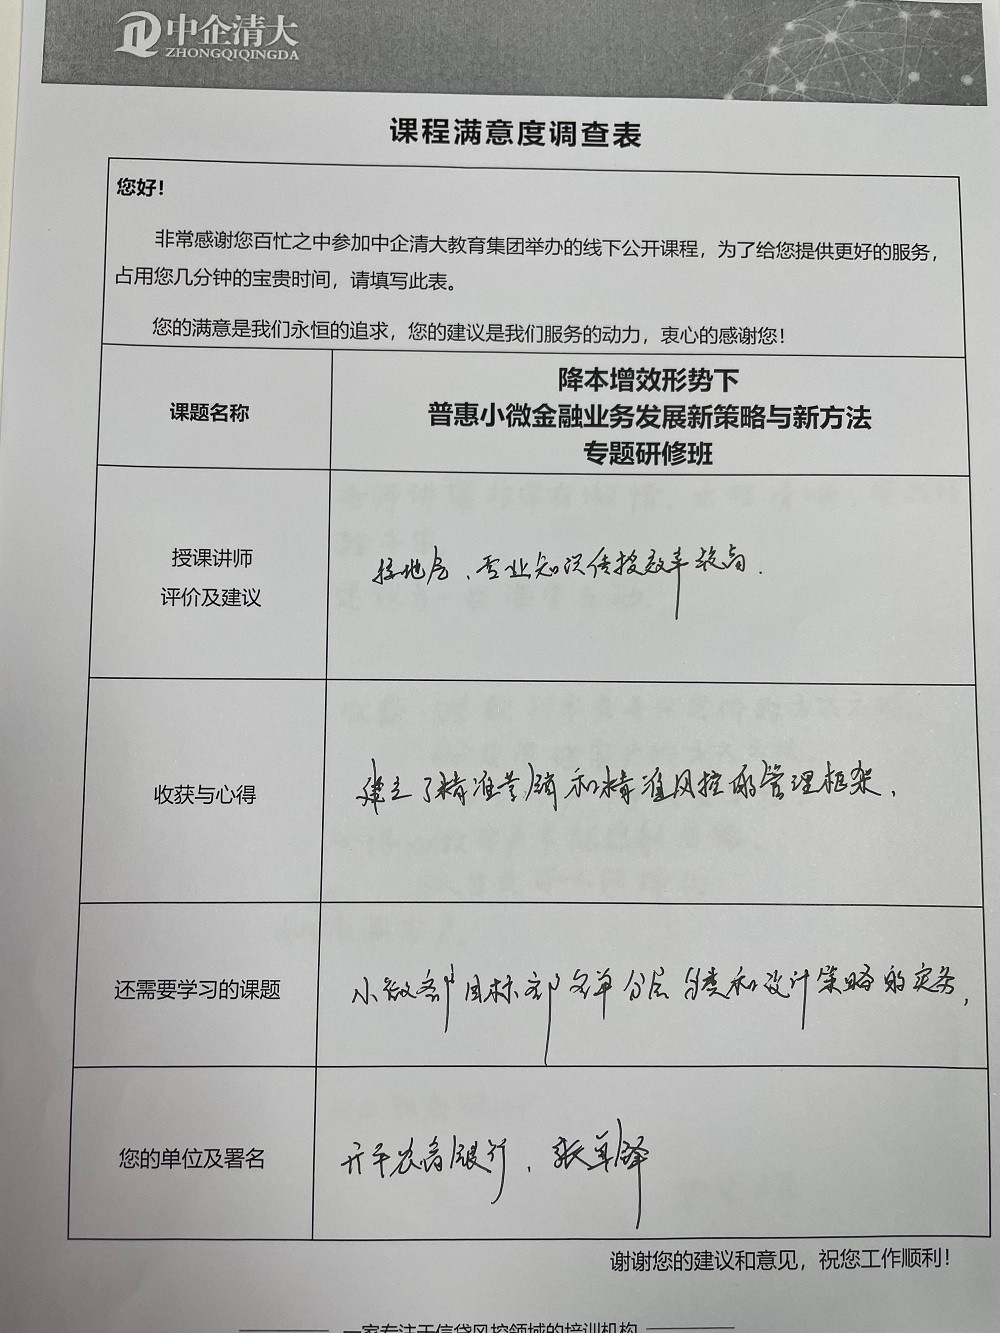 中企清大
ZHONGQIQINGDA
课程满意度调查表
您好！
非常感谢您百忙之中参加中企清大教育集团举办的线下公开课程，为了给您提供更好的服务，
占用您几分钟的宝贵时间，请填写此表。
您的满意是我们永恒的追求，您的建议是我们服务的动力，衷心的感谢您！
课题名称
降本增效形势下
普惠小微金融业务发展新策略与新方法
专题研修班
授课讲师
评价及建议
接地气、专业知识传授效率较高.
收获与心得
建立了精准营销和精准风控的管理框架,
还需要学习的课题
小微客户目标客户名单分层分类和设计策略的实务,
您的单位及署名
开平农商银行、张
谢谢您的建议和意见，祝您工作顺利！
一家专注于信贷风控领域的培训机构